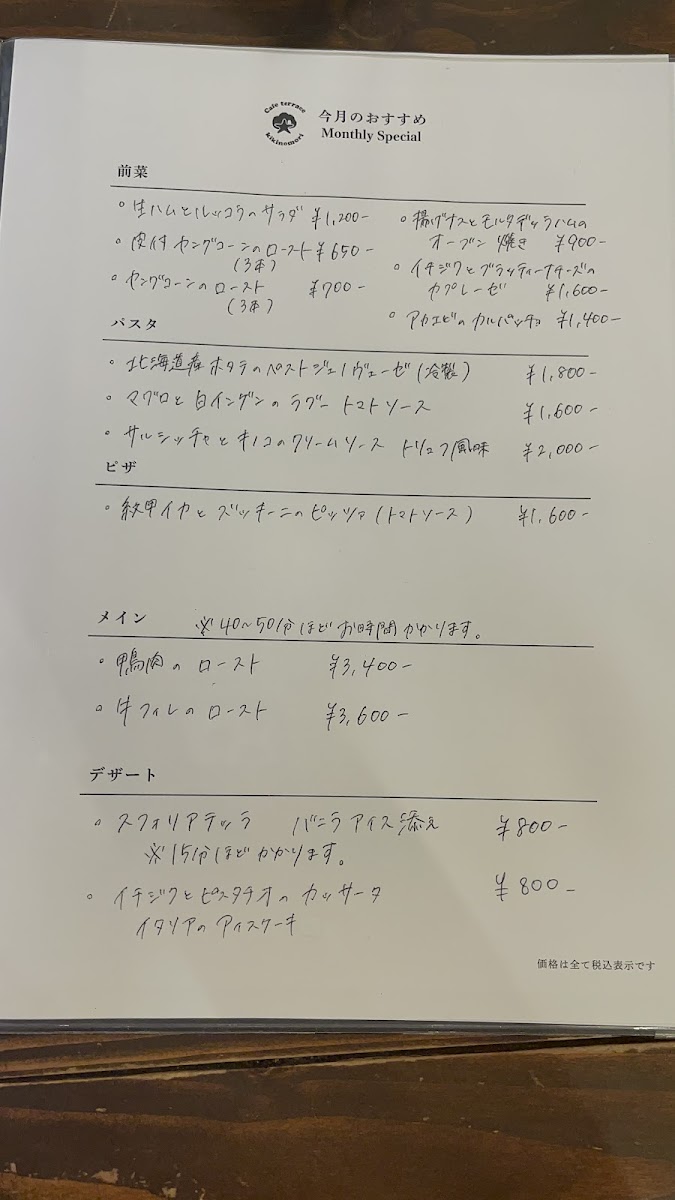 Cafe terrace
kikinomori
今月のおすすめ
Monthly Special
前菜
° 生ハムとルッコラのサラダ ¥1,200-
° 皮付ヤングコーンのロースト ¥650-
(3本)
° ヤングコーンのロースト ¥700-
(3本)
° 揚げナスとモルタデッラハムの
オーブン焼き ¥900-
° イチジクとブラッティーナチーズの
カプレーゼ ¥1,600-
° アカエビのカルパッチョ ¥1,400-
パスタ
° 北海道産ホタテのペストジェノヴェーゼ(冷製) ¥1,800-
° マグロと白インゲンのラグー トマトソース ¥1,600-
° サルシッチャとキノコのクリームソース トリュフ風味 ¥2,000-
ピザ
° 紋甲イカとズッキーニのピッツァ(トマトソース) ¥1,600-
メイン ※40~50分ほどお時間かかります。
° 鴨肉のロースト ¥3,400-
° 牛フィレのロースト ¥3,600-
デザート
° スフォリアテッラ バニラアイス添え ¥800-
※15分ほどかかります。
° イチジクとピスタチオのカッサータ ¥800-
イタリアのアイスケーキ
価格は全て税込表示です